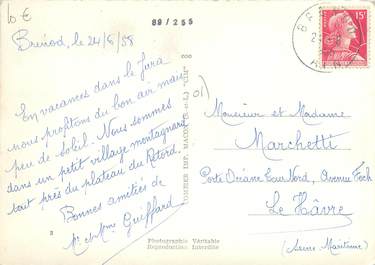 10 €
89/255
Brénod, le 24/6/58
En vacances dans le Jura
nous profitons du bon air mais
peu de soleil. Nous sommes
dans un petit village montagnard
tout près du plateau du Retord.
Bonnes amitiés de
Mr et Mme Guiffard
3
COMBIER IMP. MACON (S.-et-L.) "CIM"
Photographie Véritable
Reproduction Interdite
01)
15F
Monsieur et Madame
Marchetti
Porte Océane Eau Nord, Avenue Foch
Le Hâvre
(Seine Maritime)